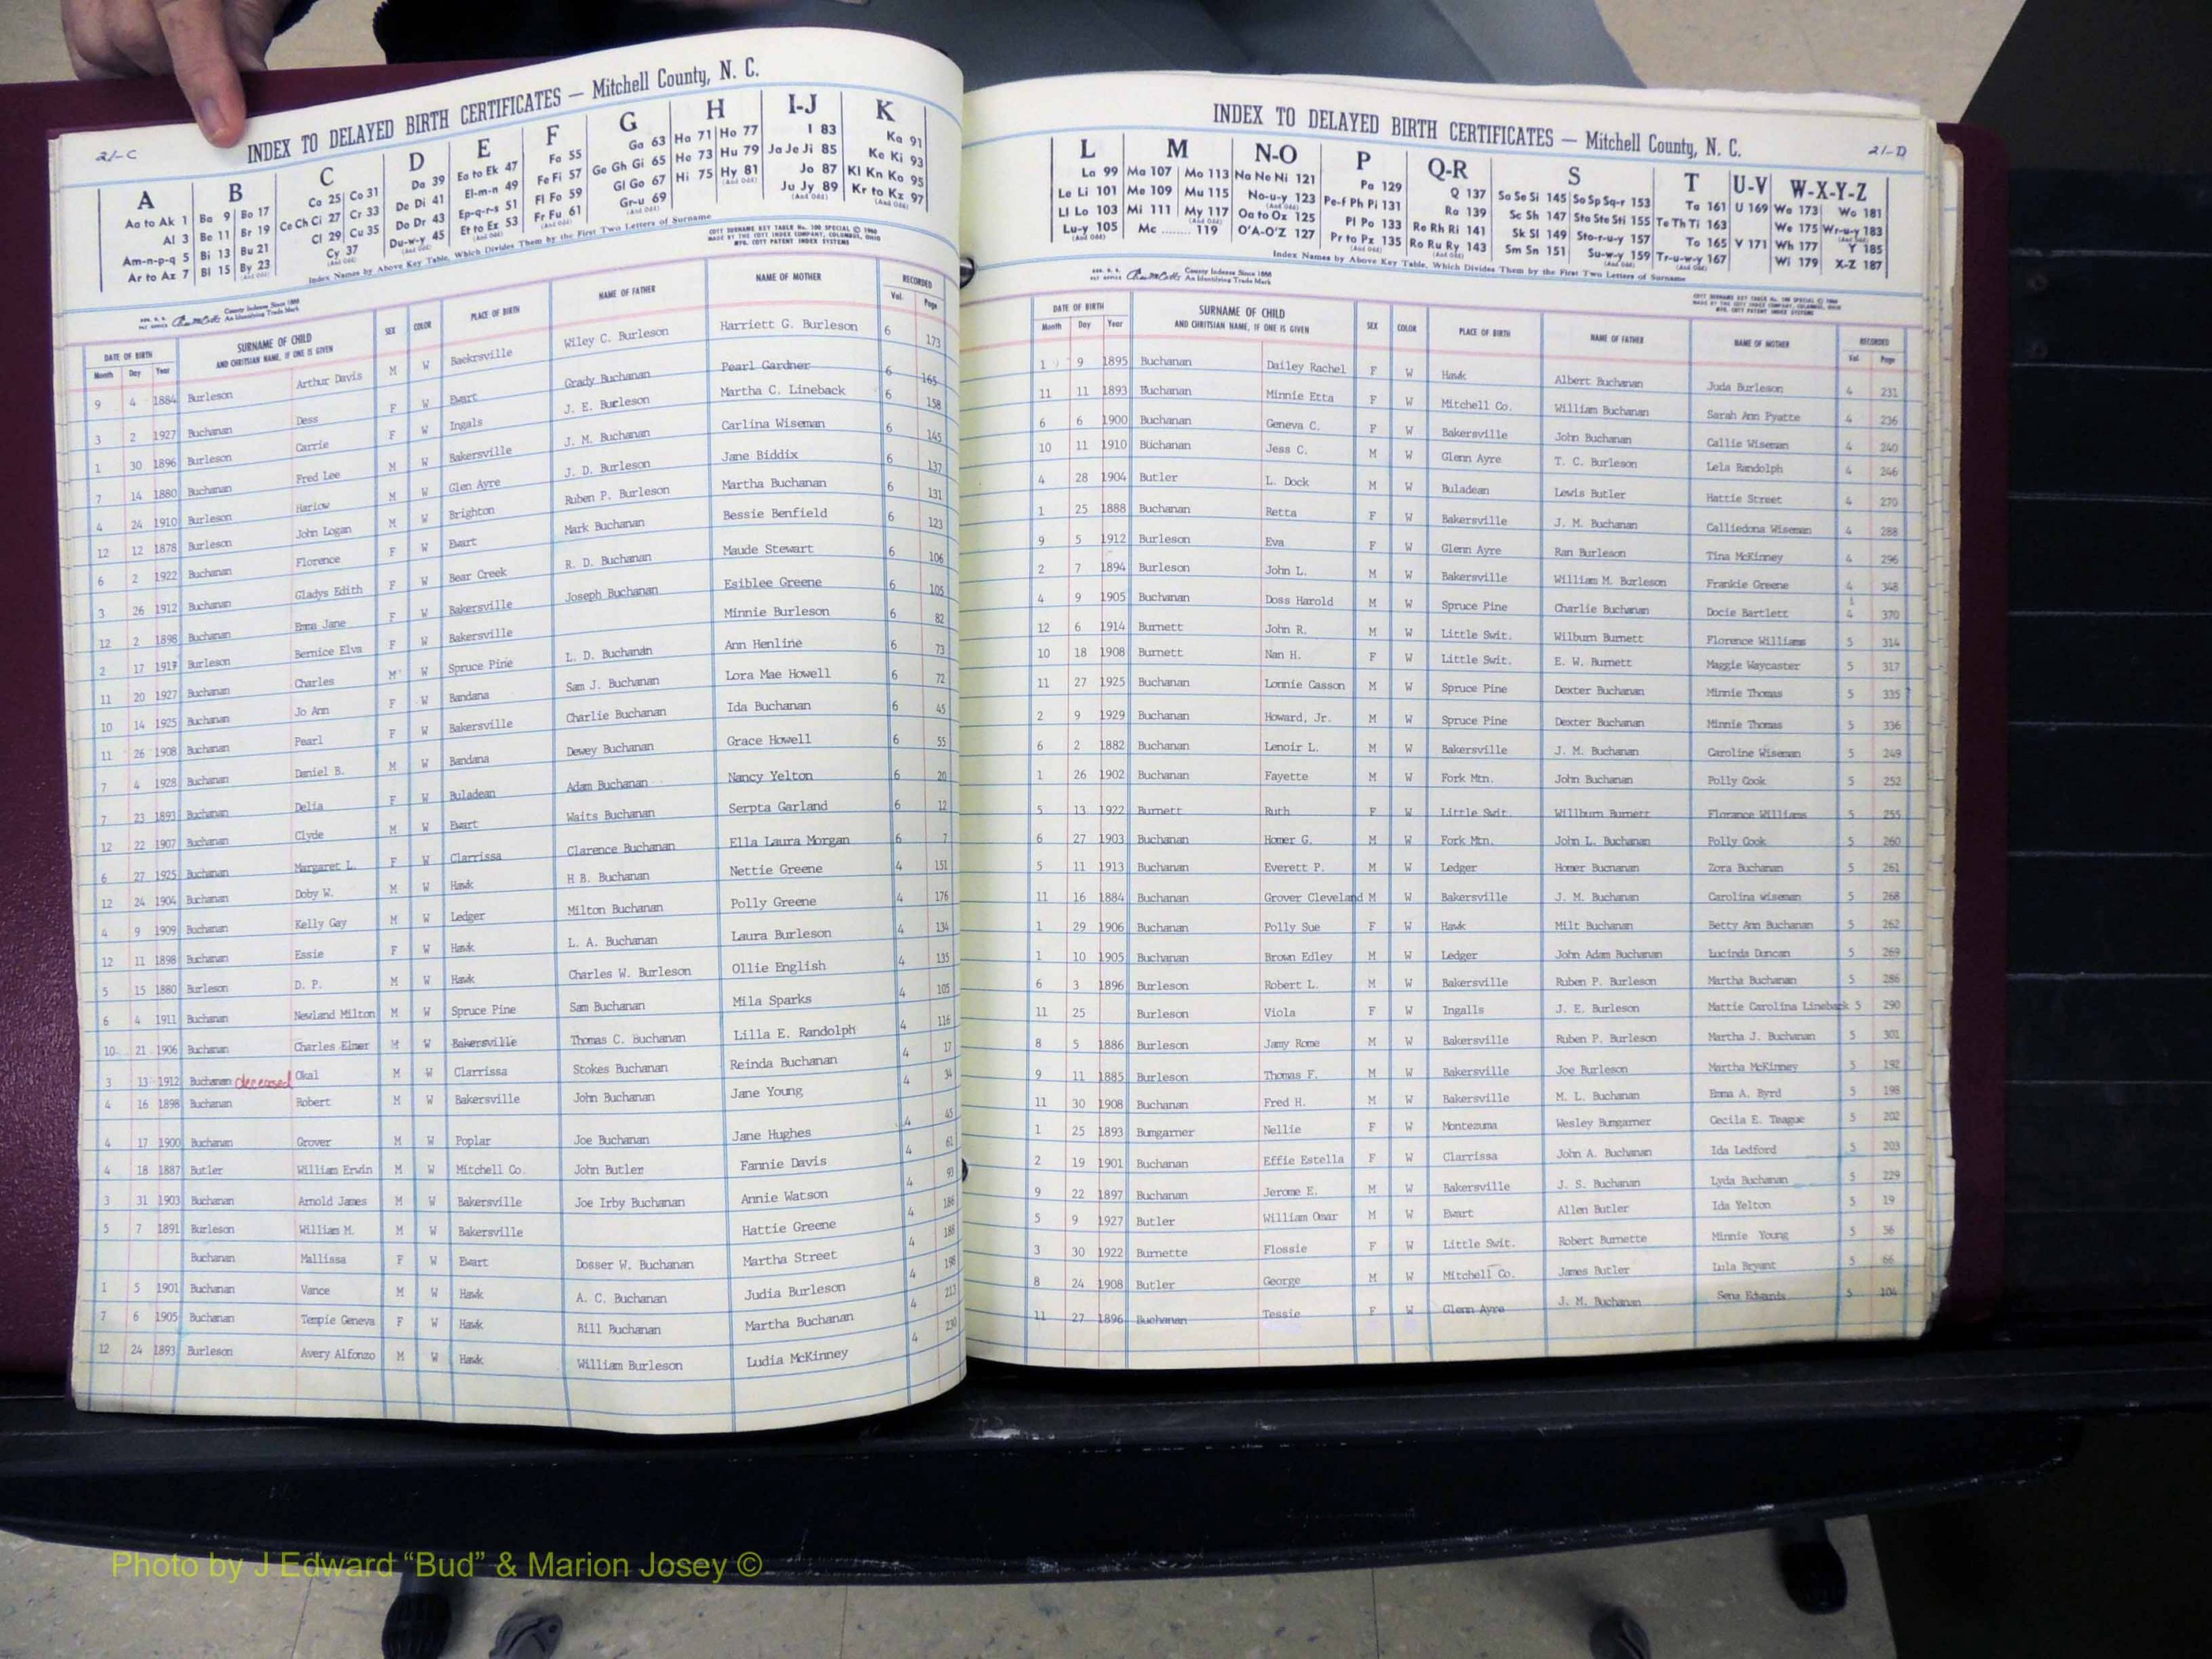 21-C
INDEX TO DELAYED BIRTH CERTIFICATES — Mitchell County, N. C.
A B C D E F G H I-J K
Aa to Ak 1 Ba 9 Bo 17 Ca 25 Co 31 Da 39 Ea to Ek 47 Fa 55 Ga 63 Ha 71 Ho 77 I 83 Ka 91
Al 3 Be 11 Br 19 Ce Ch Ci 27 Cr 33 De Di 41 El-m-n 49 Fe Fi 57 Ge Gh Gi 65 He 73 Hu 79 Ja Je Ji 85 Ke Ki 93
Am-n-p-q 5 Bi 13 Bu 21 Cl 29 Cu 35 Do Dr 43 Ep-q-r-s 51 Fl Fo 59 Gl Go 67 Hi 75 Hy 81 Jo 87 Kl Kn Ko 95
Ar to Az 7 Bl 15 By 23 Cy 37 Du-w-y 45 Et to Ex 53 Fr Fu 61 Gr-u 69 Ju Jy 89 Kr to Kz 97
Index Names by Above Key Table, Which Divides Them by the First Two Letters of Surname
COTT SURNAME KEY TABLE No. 100 SPECIAL © 1960
MADE BY THE COTT INDEX COMPANY, COLUMBUS, OHIO
MFG. COTT PATENT INDEX SYSTEMS
County Indexes Since 1888
An Identifying Trade Mark
DATE OF BIRTH SURNAME OF CHILD SEX COLOR PLACE OF BIRTH NAME OF FATHER NAME OF MOTHER RECORDED
Month Day Year AND CHRITSIAN NAME, IF ONE IS GIVEN Vol. Page
9 4 1884 Burleson Arthur Davis M W Baekrsville Wiley C. Burleson Harriett G. Burleson 6 173
3 2 1927 Buchanan Dess F W Ewart Grady Buchanan Pearl Gardner 6 165
1 30 1896 Burleson Carrie F W Ingals J. E. Burleson Martha C. Lineback 6 158
7 14 1880 Buchanan Fred Lee M W Bakersville J. M. Buchanan Carlina Wiseman 6 145
4 24 1910 Burleson Harlow M W Glen Ayre J. D. Burleson Jane Biddix 6 137
12 12 1878 Burleson John Logan M W Brighton Ruben P. Burleson Martha Buchanan 6 131
6 2 1922 Buchanan Florence F W Ewart Mark Buchanan Bessie Benfield 6 123
3 26 1912 Buchanan Gladys Edith F W Bear Creek R. D. Buchanan Maude Stewart 6 106
12 2 1898 Buchanan Emma Jane F W Bakersville Joseph Buchanan Esiblee Greene 6 105
2 17 1917 Burleson Bernice Elva F W Bakersville Minnie Burleson 6 82
11 20 1927 Buchanan Charles M W Spruce Pine L. D. Buchanan Ann Henline 6 73
10 14 1925 Buchanan Jo Ann F W Bandana Sam J. Buchanan Lora Mae Howell 6 72
11 26 1908 Buchanan Pearl F W Bakersville Charlie Buchanan Ida Buchanan 6 45
7 4 1928 Buchanan Daniel B. M W Bandana Dewey Buchanan Grace Howell 6 55
7 23 1893 Buchanan Delia F W Buladean Adam Buchanan Nancy Yelton 6 20
12 22 1907 Buchanan Clyde M W Ewart Waits Buchanan Serpta Garland 6 12
6 27 1925 Buchanan Margaret L. F W Clarrissa Clarence Buchanan Ella Laura Morgan 6 7
12 24 1904 Buchanan Doby W. M W Hawk H B. Buchanan Nettie Greene 4 151
4 9 1909 Buchanan Kelly Gay M W Ledger Milton Buchanan Polly Greene 4 176
12 11 1898 Buchanan Essie F W Hawk L. A. Buchanan Laura Burleson 4 134
5 15 1880 Burleson D. P. M W Hawk Charles W. Burleson Ollie English 4 135
6 4 1911 Buchanan Newland Milton M W Spruce Pine Sam Buchanan Mila Sparks 4 105
10 21 1906 Buchanan Charles Elmer M W Bakersville Thomas C. Buchanan Lilla E. Randolph 4 116
3 13 1912 Buchanan deceased Okal M W Clarrissa Stokes Buchanan Reinda Buchanan 4 17
4 16 1898 Buchanan Robert M W Bakersville John Buchanan Jane Young 4 34
4 17 1900 Buchanan Grover M W Poplar Joe Buchanan Jane Hughes 4 45
4 18 1887 Butler William Erwin M W Mitchell Co. John Butler Fannie Davis 4 61
3 31 1903 Buchanan Arnold James M W Bakersville Joe Irby Buchanan Annie Watson 4 93
5 7 1891 Burleson William M. M W Bakersville Hattie Greene 4 186
Buchanan Mallissa F W Ewart Dosser W. Buchanan Martha Street 4 188
1 5 1901 Buchanan Vance M W Hawk A. C. Buchanan Judia Burleson 4 198
7 6 1905 Buchanan Tempie Geneva F W Hawk Bill Buchanan Martha Buchanan 4 213
12 24 1893 Burleson Avery Alfonzo M W Hawk William Burleson Ludia McKinney 4 230
INDEX TO DELAYED BIRTH CERTIFICATES — Mitchell County, N. C.
21-D
L M N-O P Q-R S T U-V W-X-Y-Z
La 99 Ma 107 Mo 113 Na Ne Ni 121 Pa 129 Q 137 Sa Se Si 145 So Sp Sq-r 153 Ta 161 U 169 Wa 173 Wo 181
Le Li 101 Me 109 Mu 115 No-u-y 123 Pe-f Ph Pi 131 Ra 139 Sc Sh 147 Sta Ste Sti 155 Te Th Ti 163 We 175 Wr-u-y 183
Ll Lo 103 Mi 111 My 117 Oa to Oz 125 Pl Po 133 Re Rh Ri 141 Sk Sl 149 Sto-r-u-y 157 To 165 V 171 Wh 177 Y 185
Lu-y 105 Mc ........ 119 O'A-O'Z 127 Pr to Pz 135 Ro Ru Ry 143 Sm Sn 151 Su-w-y 159 Tr-u-w-y 167 Wi 179 X-Z 187
Index Names by Above Key Table, Which Divides Them by the First Two Letters of Surname
County Indexes Since 1888
An Identifying Trade Mark
COTT SURNAME KEY TABLE No. 100 SPECIAL © 1960
MADE BY THE COTT INDEX COMPANY, COLUMBUS, OHIO
MFG. COTT PATENT INDEX SYSTEMS
DATE OF BIRTH SURNAME OF CHILD SEX COLOR PLACE OF BIRTH NAME OF FATHER NAME OF MOTHER RECORDED
Month Day Year AND CHRITSIAN NAME, IF ONE IS GIVEN Vol. Page
1 9 1895 Buchanan Dailey Rachel F W Hawk Albert Buchanan Juda Burleson 4 231
11 11 1893 Buchanan Minnie Etta F W Mitchell Co. William Buchanan Sarah Ann Pyatte 4 236
6 6 1900 Buchanan Geneva C. F W Bakersville John Buchanan Callie Wiseman 4 240
10 11 1910 Buchanan Jess C. M W Glenn Ayre T. C. Burleson Lela Randolph 4 246
4 28 1904 Butler L. Dock M W Buladean Lewis Butler Hattie Street 4 270
1 25 1888 Buchanan Retta F W Bakersville J. M. Buchanan Calliedona Wiseman 4 288
9 5 1912 Burleson Eva F W Glenn Ayre Ran Burleson Tina McKinney 4 296
2 7 1894 Burleson John L. M W Bakersville William M. Burleson Frankie Greene 4 348
4 9 1905 Buchanan Doss Harold M W Spruce Pine Charlie Buchanan Docie Bartlett 4 370
12 6 1914 Burnett John R. M W Little Swit. Wilburn Burnett Florence Williams 5 314
10 18 1908 Burnett Nan H. F W Little Swit. E. W. Burnett Maggie Waycaster 5 317
11 27 1925 Buchanan Lonnie Casson M W Spruce Pine Dexter Buchanan Minnie Thomas 5 335
2 9 1929 Buchanan Howard, Jr. M W Spruce Pine Dexter Buchanan Minnie Thomas 5 336
6 2 1882 Buchanan Lenoir L. M W Bakersville J. M. Buchanan Caroline Wiseman 5 249
1 26 1902 Buchanan Fayette M W Fork Mtn. John Buchanan Polly Cook 5 252
5 13 1922 Burnett Ruth F W Little Swit. Willburn Burnett Florance Williams 5 255
6 27 1903 Buchanan Homer G. M W Fork Mtn. John L. Buchanan Polly Cook 5 260
5 11 1913 Buchanan Everett P. M W Ledger Homer Bucnanan Zora Buchanan 5 261
11 16 1884 Buchanan Grover Cleveland M W Bakersville J. M. Buchanan Carolina wiseman 5 268
1 29 1906 Buchanan Polly Sue F W Hawk Milt Buchanan Betty Ann Buchanan 5 262
1 10 1905 Buchanan Brown Edley M W Ledger John Adam Buchanan Lucinda Duncan 5 269
6 3 1896 Burleson Robert L. M W Bakersville Ruben P. Burleson Martha Buchanan 5 286
11 25 Burleson Viola F W Ingalls J. E. Burleson Mattie Carolina Lineback 5 290
8 5 1886 Burleson Jamy Rome M W Bakersville Ruben P. Burleson Martha J. Buchanan 5 301
9 11 1885 Burleson Thomas F. M W Bakersville Joe Burleson Martha McKinney 5 192
11 30 1908 Buchanan Fred H. M W Bakersville M. L. Buchanan Emma A. Byrd 5 198
1 25 1893 Bumgarner Nellie F W Montezuma Wesley Bumgarner Cecila E. Teague 5 202
2 19 1901 Buchanan Effie Estella F W Clarrissa John A. Buchanan Ida Ledford 5 203
9 22 1897 Buchanan Jerome E. M W Bakersville J. S. Buchanan Lyda Buchanan 5 229
5 9 1927 Butler William Omar M W Ewart Allen Butler Ida Yelton 5 19
3 30 1922 Burnette Flossie F W Little Swit. Robert Burnette Minnie Young 5 56
8 24 1908 Butler George M W Mitchell Co. James Butler Lula Bryant 5 66
11 27 1896 Buchanan Tessie F W Glenn Ayre J. M. Buchanan Sena Edwards 5 104
Photo by J Edward “Bud” & Marion Josey ©